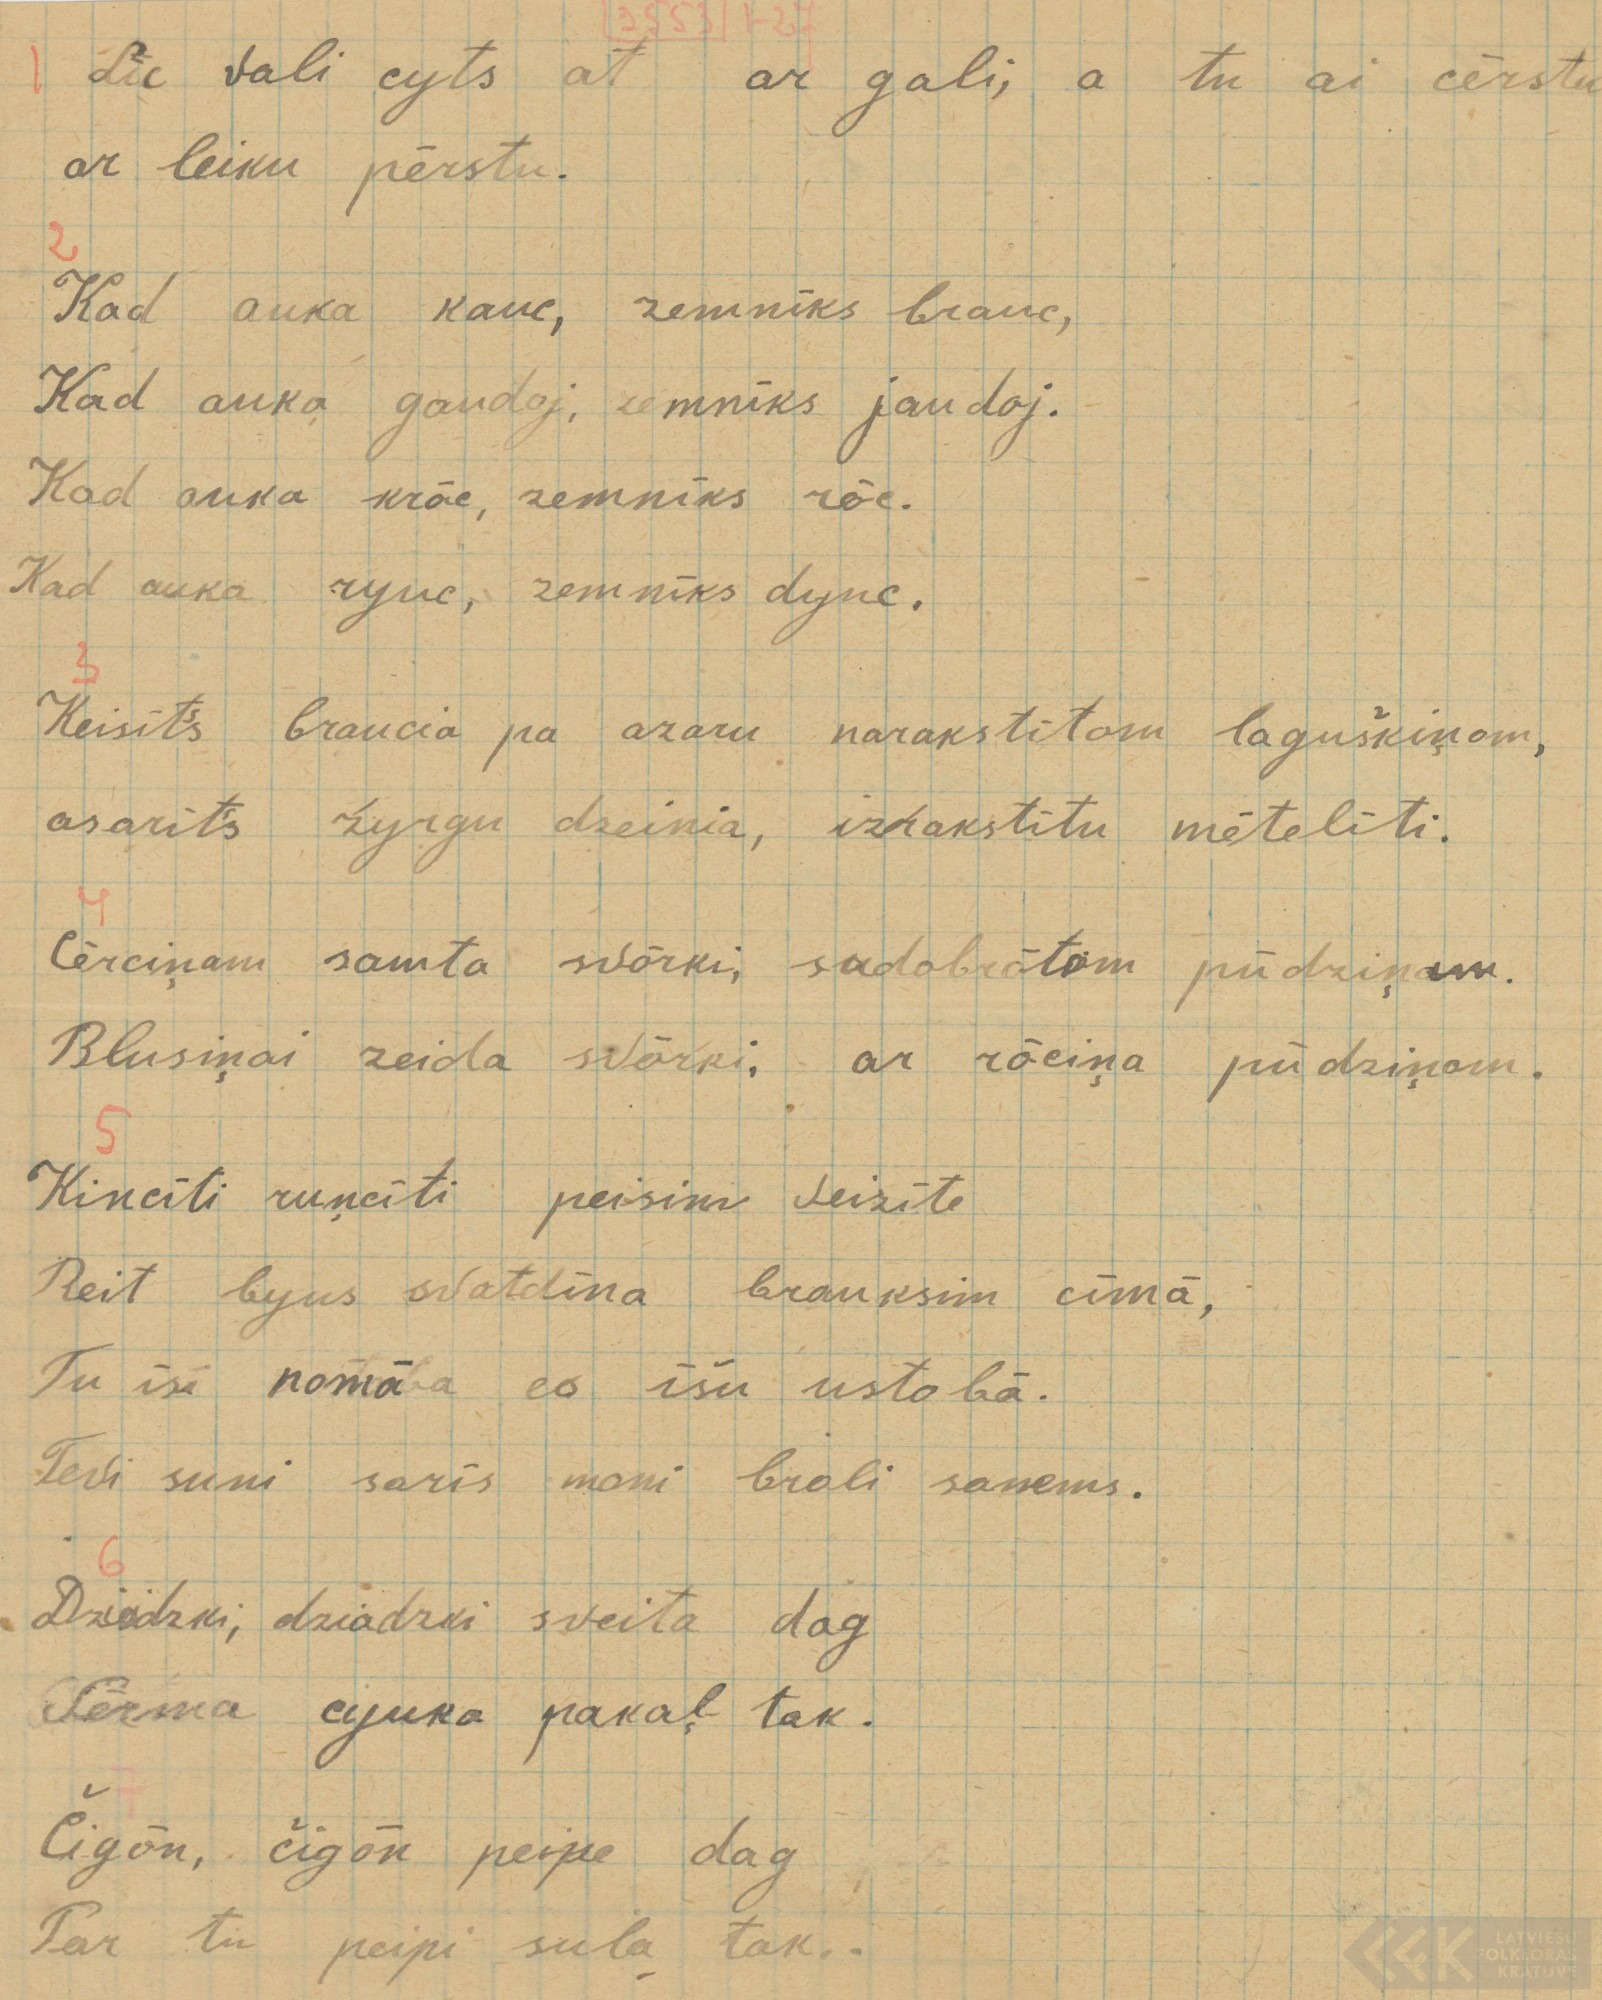 [3553] 1-27
1 Līc vali cyts at ar gali, a tu ai cērstu
ar leiku pērstu.
2
Kad auka kauc, zemnīks brauc,
Kad auka gaudoj, zemnīks jaudoj.
Kad auka krāc, zemnīks rōc.
Kad auka ryuc, zemnīks dync.
3
Keisīts braucia pa azaru narakstītom laguškiņom,
asarīts zyrgu dzeinia, izrakstītu mētelīti.
4
Cērciņam samta svōrki, sudabrātom pūdziņam.
Blusiņai zeida svōrki, ar rōciņa pūdziņom.
5
Kincīti ruņcīti peisim veizīte
Reit byus svatdīna brauksim cīmā,
Tu īsi nomā es īšu ustobā.
Tevi suni sarīs mani broli sanems.
6
Dziadzki, dziadzki sveita dag
Pērma cyuka pakaļ tak.
7
Čigōn, čigōn peipe dag
Par tū peipi suļa tak..
LATVIEŠU
FOLKLORAS
KRĀTUVE